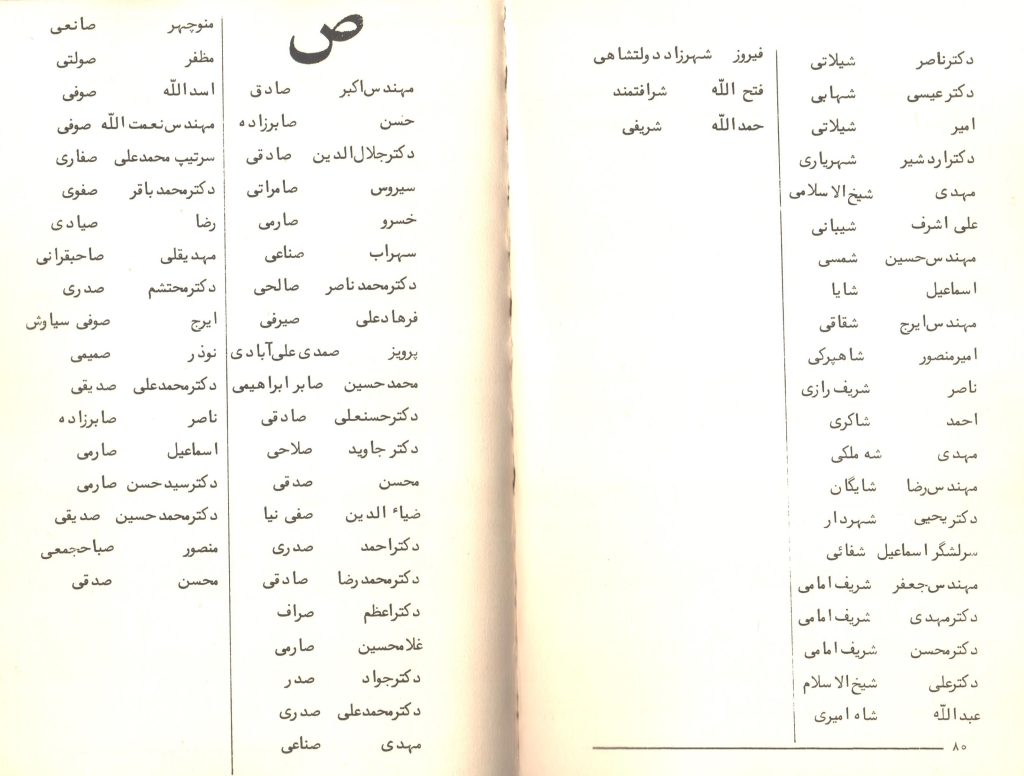 دکترناصر شیلاتی
دکترعیسی شهابی
امیر شیلاتی
دکتراردشیر شهریاری
مهدی شیخ‌الاسلامی
علی اشرف شیبانی
مهندس‌حسین شمسی
اسماعیل شایا
مهندس‌ایرج شقاقی
امیرمنصور شاهپرکی
ناصر شریف رازی
احمد شاکری
مهدی شه ملکی
مهندس‌رضا شایگان
دکتریحیی شهردار
سرلشگر اسماعیل شفائی
مهندس‌جعفر شریف‌امامی
دکترمهدی شریف‌امامی
دکترمحسن شریف‌امامی
دکترعلی شیخ‌الاسلام
عبدالله شاه امیری
فیروز شهرزاد دولتشاهی
فتح الله شرافتمند
حمدالله شریفی
۸۰
ص
مهندس‌اکبر صادق
حسن صابرزاده
دکترجلال‌الدین صادقی
سیروس صامراتی
خسرو صارمی
سهراب صناعی
دکترمحمدناصر صالحی
فرهادعلی صیرفی
پرویز صمدی علی‌آبادی
محمدحسین صابر ابراهیمی
دکترحسنعلی صادقی
دکتر جاوید صلاحی
محسن صدقی
ضیاء الدین صفی نیا
دکتراحمد صدری
دکترمحمدرضا صادقی
دکتراعظم صراف
غلامحسین صارمی
دکترجواد صدر
دکترمحمدعلی صدری
مهدی صناعی
منوچهر صانعی
مظفر صولتی
اسدالله صوفی
مهندس‌نعمت‌الله صوفی
سرتیپ محمدعلی صفاری
دکترمحمدباقر صفوی
رضا صیادی
مهدیقلی صاحبقرانی
دکترمحتشم صدری
ایرج صوفی سیاوش
نوذر صمیمی
دکترمحمدعلی صدیقی
ناصر صابرزاده
اسماعیل صارمی
دکترسیدحسن صارمی
دکترمحمدحسین صدیقی
منصور صباحجمعی
محسن صدقی